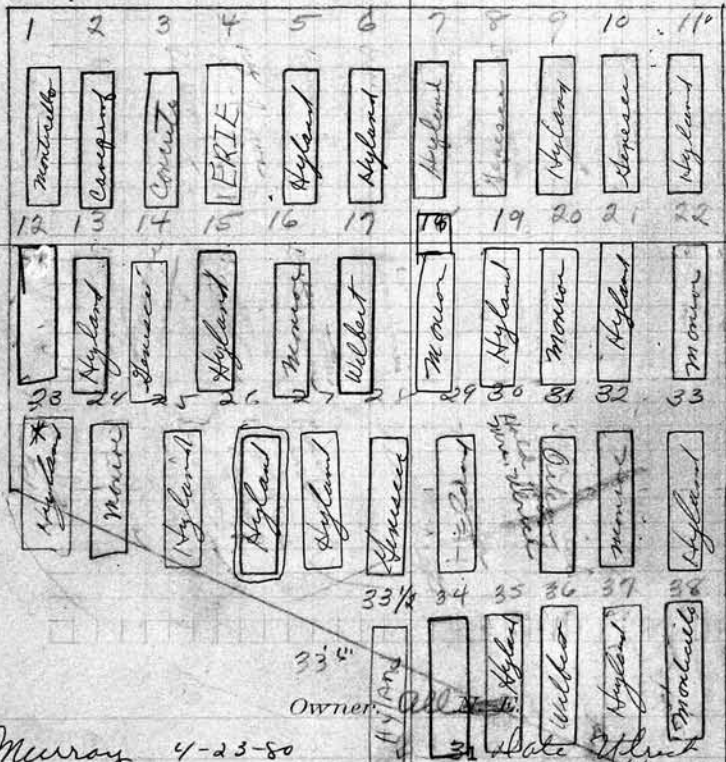 1 2 3 4 5 6 7 8 9 10 11
Monticello Canegrof Concrete ERIE Hyland Hyland Hyland Genesee Hyland Genesee Hyland
12 13 14 15 16 17 18 19 20 21 22
Hyland Genesee Hyland Monroe Wilbert Monroe Hyland Monroe Hyland Monroe
23 24 25 26 27 28 29 30 31 32 33
Hyland* Monroe Hyland Hyland Hyland Genesee Monroe Hyland
33 1/2 34 35 36 37 38
Hyland Hyland Wilbert Hyland Monticello
33'4"
Owner All N.E.
Murray 4-23-80 31 Date Ulrich